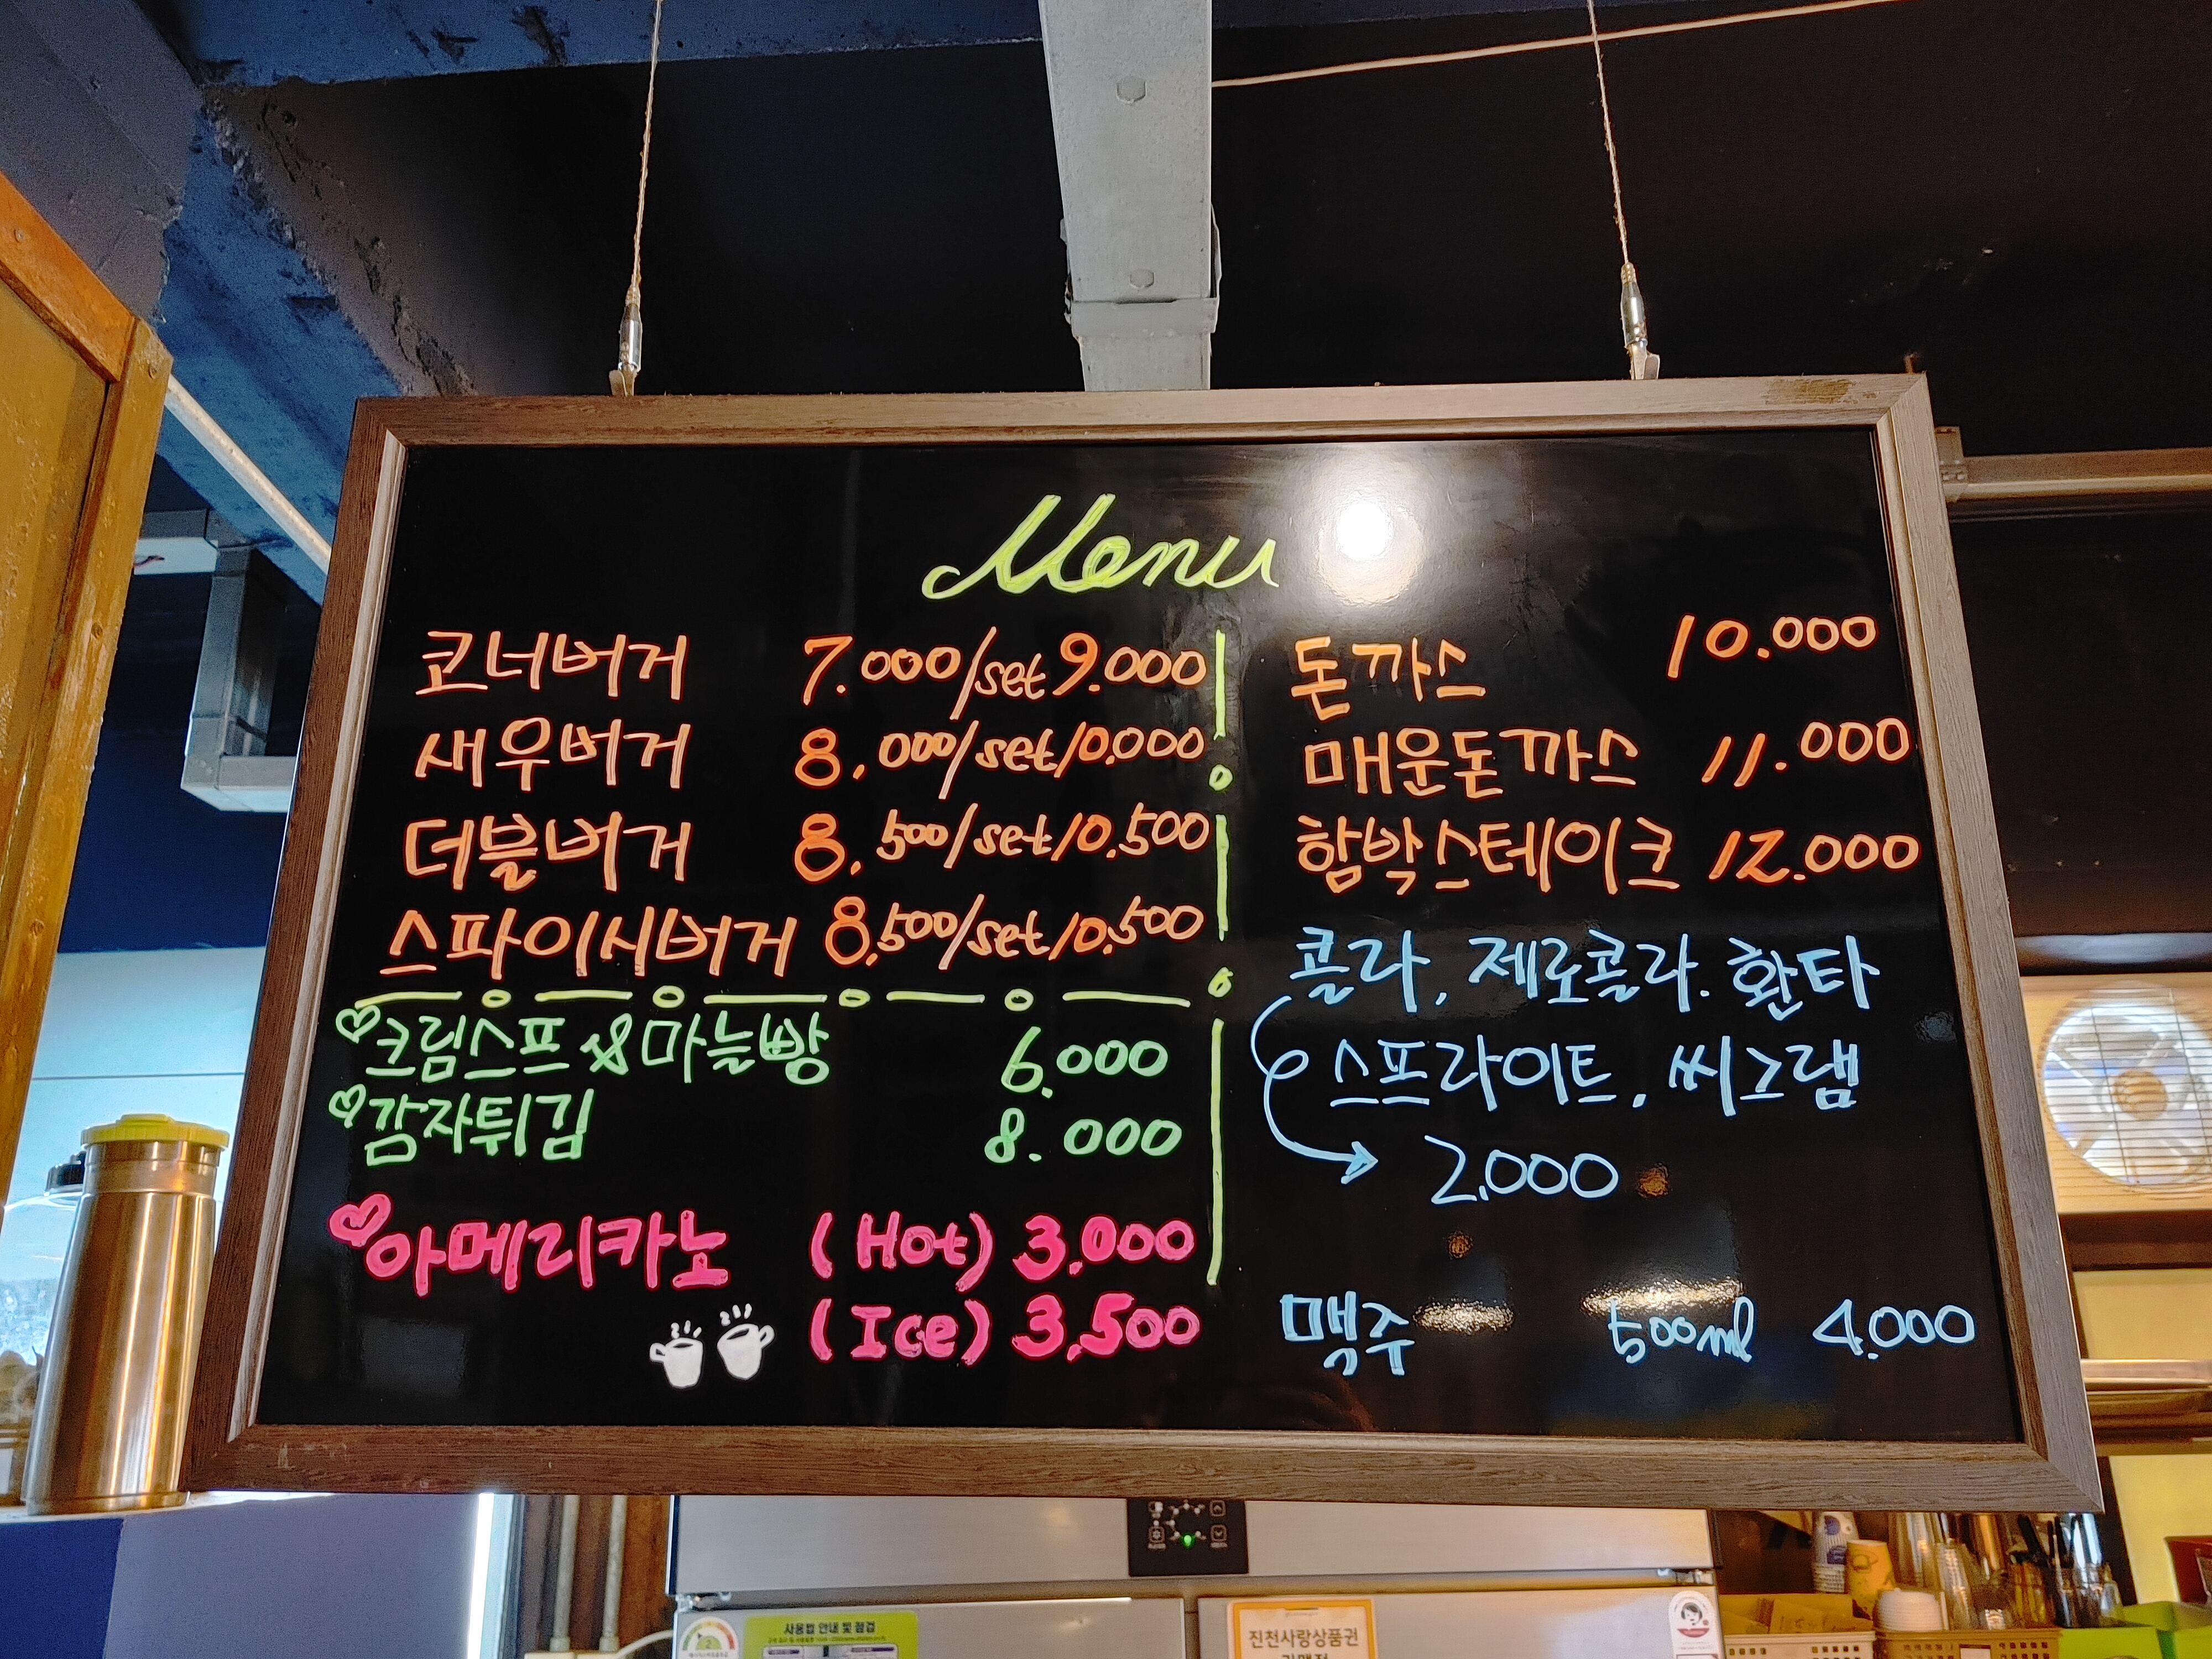 Menu
코너버거 7.000/set 9.000
새우버거 8.000/set/10.000
더블버거 8.500/set/10.500
스파이시버거 8.500/set/10.500
크림스프 & 마늘빵 6.000
감자튀김 8.000
아메리카노 (Hot) 3.000
(Ice) 3.500
돈까스 10.000
매운돈까스 11.000
함박스테이크 12.000
콜라, 제로콜라. 환타
스프라이트, 씨그램
2.000
맥주 500ml 4.000
사용방법 안내 및 점검
진천사랑상품권